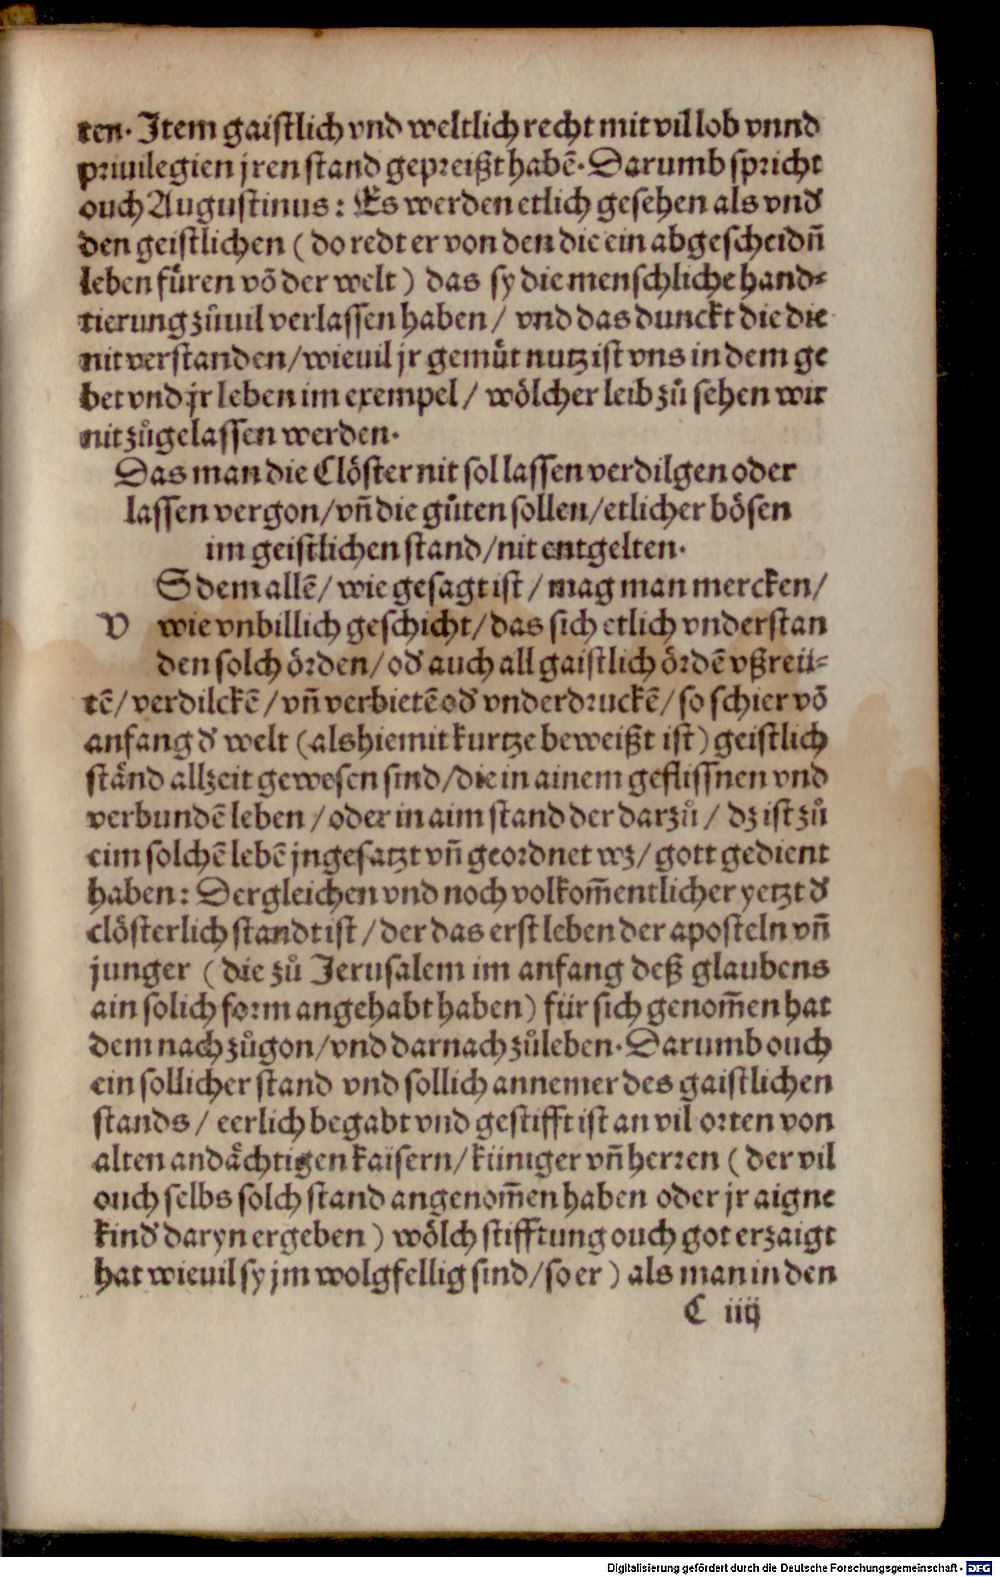 ten. Jtem gaistlich vnd weltlich recht mit vil lob vnnd
priuilegien jren stand gepreißt habē. Darumb spricht
ouch Augustinus: Es werden etlich gesehen als vnď
den geistlichen (do redt er von den die ein abgescheidn̄
leben fuͤren vō der welt) das sy die menschliche hand⸗
tierung zuͦuil verlassen haben/ vnd das dunckt die die
nit verstanden/wieuil jr gemuͤt nutz ist vns in dem ge
bet vnd jr leben im exempel/ woͤlcher leib zuͦ sehen wir
nit zuͦgelassen werden.
Das man die Cloͤster nit sol lassen verdilgen oder
lassen vergon/vn̄ die guͤten sollen/etlicher boͤsen
im geistlichen stand/nit entgelten.
V
S dem allē/ wie gesagt ist/ mag man mercken/
wie vnbillich geschicht/das sich etlich vnderstan
den solch oͤrden/oď auch all gaistlich oͤrdē vßreü⸗
tē/ verdilckē/ vn̄ verbietē oď vnderdruckē/ so schier vō
anfang ď welt (als hiemit kurtze beweißt ist) geistlich
staͤnd allzeit gewesen sind/die in ainem geflissnen vnd
verbundē leben/ oder in aim stand der darzuͦ/ dz ist zuͦ
eim solchē lebē jngesatzt vn̄ geordnet wz/ gott gedient
haben: Dergleichen vnd noch volkom̄entlicher yetzt ď
cloͤsterlich standt ist/ der das erst leben der aposteln vn̄
junger (die zuͦ Jerusalem im anfang deß glaubens
ain solich form angehabt haben) für sich genom̄en hat
dem nach zuͦgon/vnd darnach zuͦleben. Darumb ouch
ein sollicher stand vnd sollich annemer des gaistlichen
stands/ eerlich begabt vnd gestifft ist an vil orten von
alten andaͤchtigen kaisern/ küniger vn̄ herren (der vil
ouch selbs solch stand angenom̄en haben oder jr aigne
kinď daryn ergeben) woͤlch stifftung ouch got erzaigt
hat wieuil sy jm wolgfellig sind/so er) als man in den
C iiij
Digitalisierung gefördert durch die Deutsche Forschungsgemeinschaft - DFG